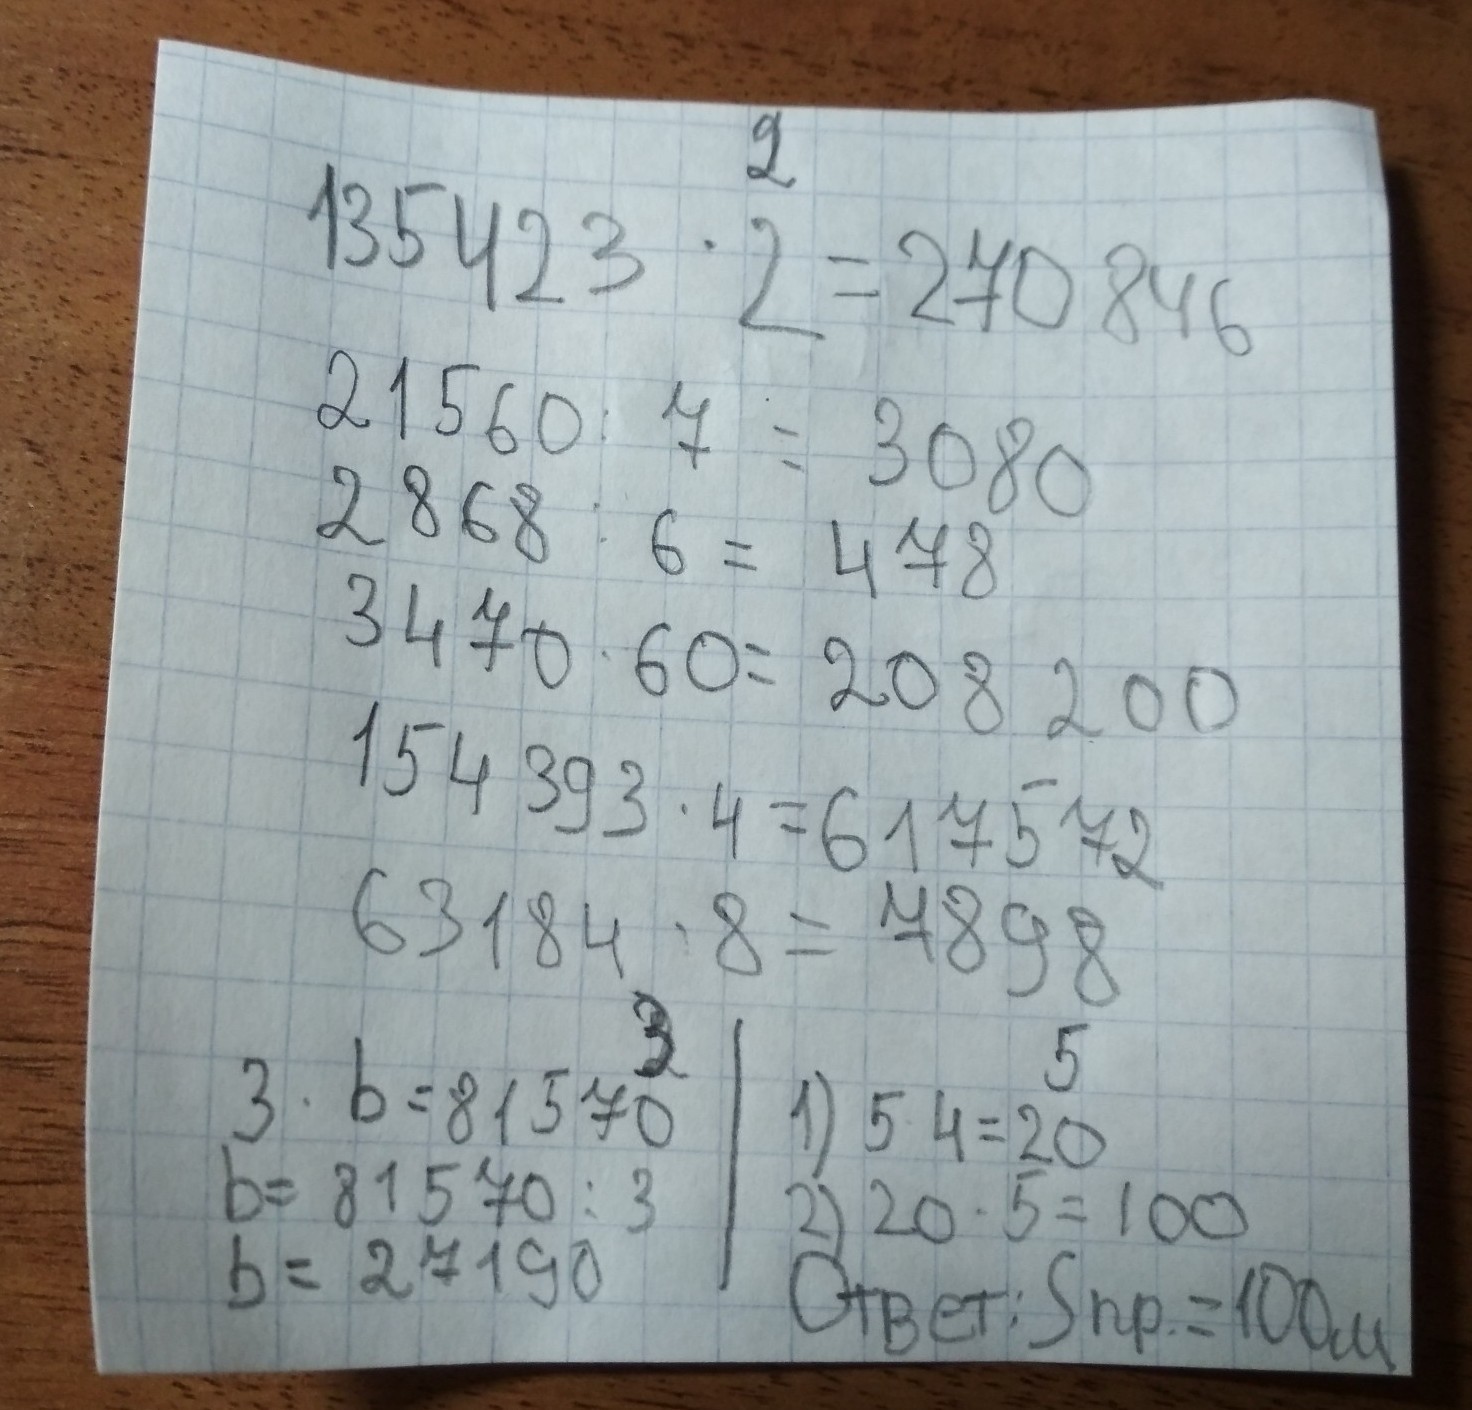 2
135423 · 2 = 270 846
21560 : 7 = 3080
2868 : 6 = 478
3470 · 60 = 208 200
154 393 · 4 = 617572
63184 : 8 = 7898
3
3 · b = 81570
b = 81570 : 3
b = 27190
5
1) 5 · 4 = 20
2) 20 · 5 = 100
Ответ: Sпр. = 100м